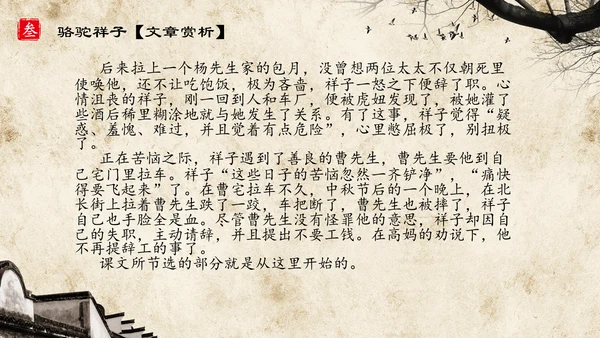 叁 骆驼祥子【文章赏析】
后来拉上一个杨先生家的包月，没曾想两位太太不仅朝死里
使唤他，还不让吃饱饭，极为吝啬，祥子一怒之下便辞了职。心
情沮丧的祥子，刚一回到人和车厂，便被虎妞发现了，被她灌了
些酒后稀里糊涂地就与她发生了关系。有了这事，祥子觉得“疑
惑、羞愧、难过，并且觉着有点危险”，心里憋屈极了，别扭极
了。
正在苦恼之际，祥子遇到了善良的曹先生，曹先生要他到自
己宅门里拉车。祥子“这些日子的苦恼忽然一齐铲净”，“痛快
得要飞起来”了。在曹宅拉车不久，中秋节后的一个晚上，在北
长街上拉着曹先生跌了一跤，车把断了，曹先生也被摔了，祥子
自己也手脸全是血。尽管曹先生没有怪罪他的意思，祥子却因自
己的失职，主动请辞，并且提出不要工钱。在高妈的劝说下，他
不再提辞工的事了。
课文所节选的部分就是从这里开始的。